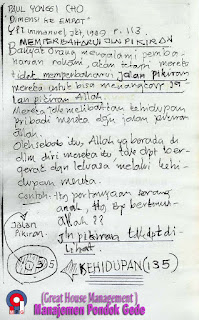 PAUL YONGGI CHO
"DIMENSI KE EMPAT"
YPI Immanuel Jkt, 1989, p. 113
MEMPERBAHARUI JLN PIKIRAN
Banyak orang mengalami pembaharuan rohani, akan tetapi mereka
tidak memperbaharui jalan pikiran
mereka untuk bisa menangkap jalan pikiran Allah
Mereka tdk melibatkan kehidupan
pribadi mereka dgn jalan pikiran
Allah.
Oleh sebab itu, Allah yg berada di
dlm diri mereka itu tdk dpt bergerak dgn leluasa melalui kehidupan mereka.
Contoh: Ttg pertanyaan seorang
anak ttg Bp bertemu
Allah ??
Jalan
Pikiran.
Jln pikiran Tdk dpt dilihat.
135
KEHIDUPAN (135)
(Great House Management)
Manajemen Pondok Gede